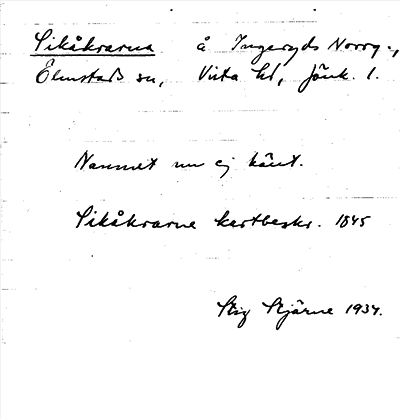 Sikåkrarna å Ingaryds Norrg.,
Ölmstads sn, Vista hd, Jönk. l.
Namnet nu ej känt.
Sikåkrarne kartbeskr. 1845
Stig Stjärne 1934.